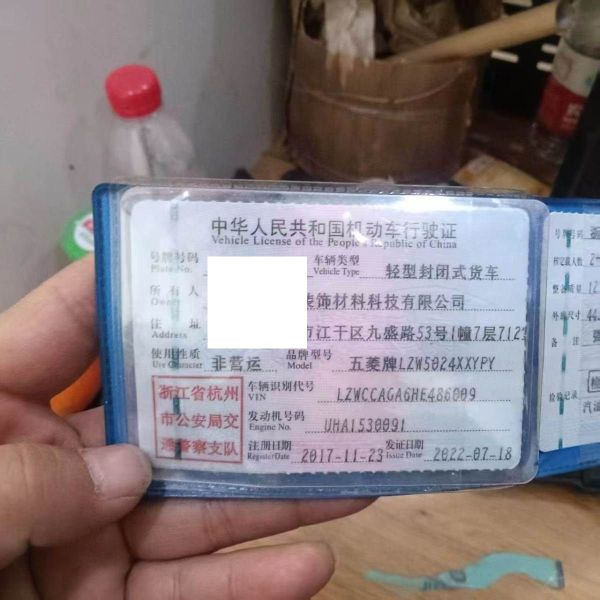 中华人民共和国机动车行驶证
Vehicle License of the People's Republic of China
号牌号码
Plate No.
车辆类型
Vehicle Type
轻型封闭式货车
所有人
Owner
装饰材料科技有限公司
住址
Address
市江干区九盛路53号1幢7层712
使用性质
Use Character
非营运
品牌型号
Model
五菱牌LZW5024XXYPY
浙江省杭州
市公安局交
通警察支队
车辆识别代号
VIN
LZWCCAGA6HE486009
发动机号码
Engine No.
UHA1530091
注册日期
Register Date
2017-11-23
发证日期
Issue Date
2022-07-18
号牌号码
核定载人数
2
整备质量
12
外廓尺寸
44
备注
检验记录
汽油